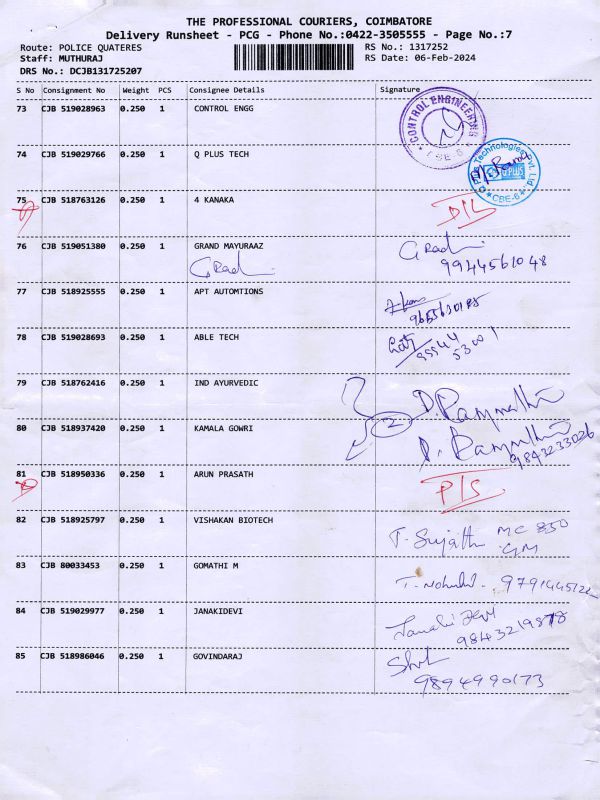 THE PROFESSIONAL COURIERS, COIMBATORE
Delivery Runsheet - PCG - Phone No.:0422-3505555 - Page No.:7
Route: POLICE QUATERES RS No.: 1317252
Staff: MUTHURAJ RS Date: 06-Feb-2024
DRS No.: DCJB131725207
S No Consignment No Weight PCS Consignee Details Signature
73 CJB 519028963 0.250 1 CONTROL ENGG
CONTROL ENGINEERING
74 CJB 519029766 0.250 1 Q PLUS TECH
Technologies Pvt. Ltd
CBE-6
75 CJB 518763126 0.250 1 4 KANAKA
76 CJB 519051380 0.250 1 GRAND MAYURAAZ
9944561048
77 CJB 518925555 0.250 1 APT AUTOMTIONS
78 CJB 519028693 0.250 1 ABLE TECH
79 CJB 518762416 0.250 1 IND AYURVEDIC
80 CJB 518937420 0.250 1 KAMALA GOWRI
2
9843233026
81 CJB 518950336 0.250 1 ARUN PRASATH
82 CJB 518925797 0.250 1 VISHAKAN BIOTECH
83 CJB 80033453 0.250 1 GOMATHI M
84 CJB 519029977 0.250 1 JANAKIDEVI
85 CJB 518986046 0.250 1 GOVINDARAJ
9894990173